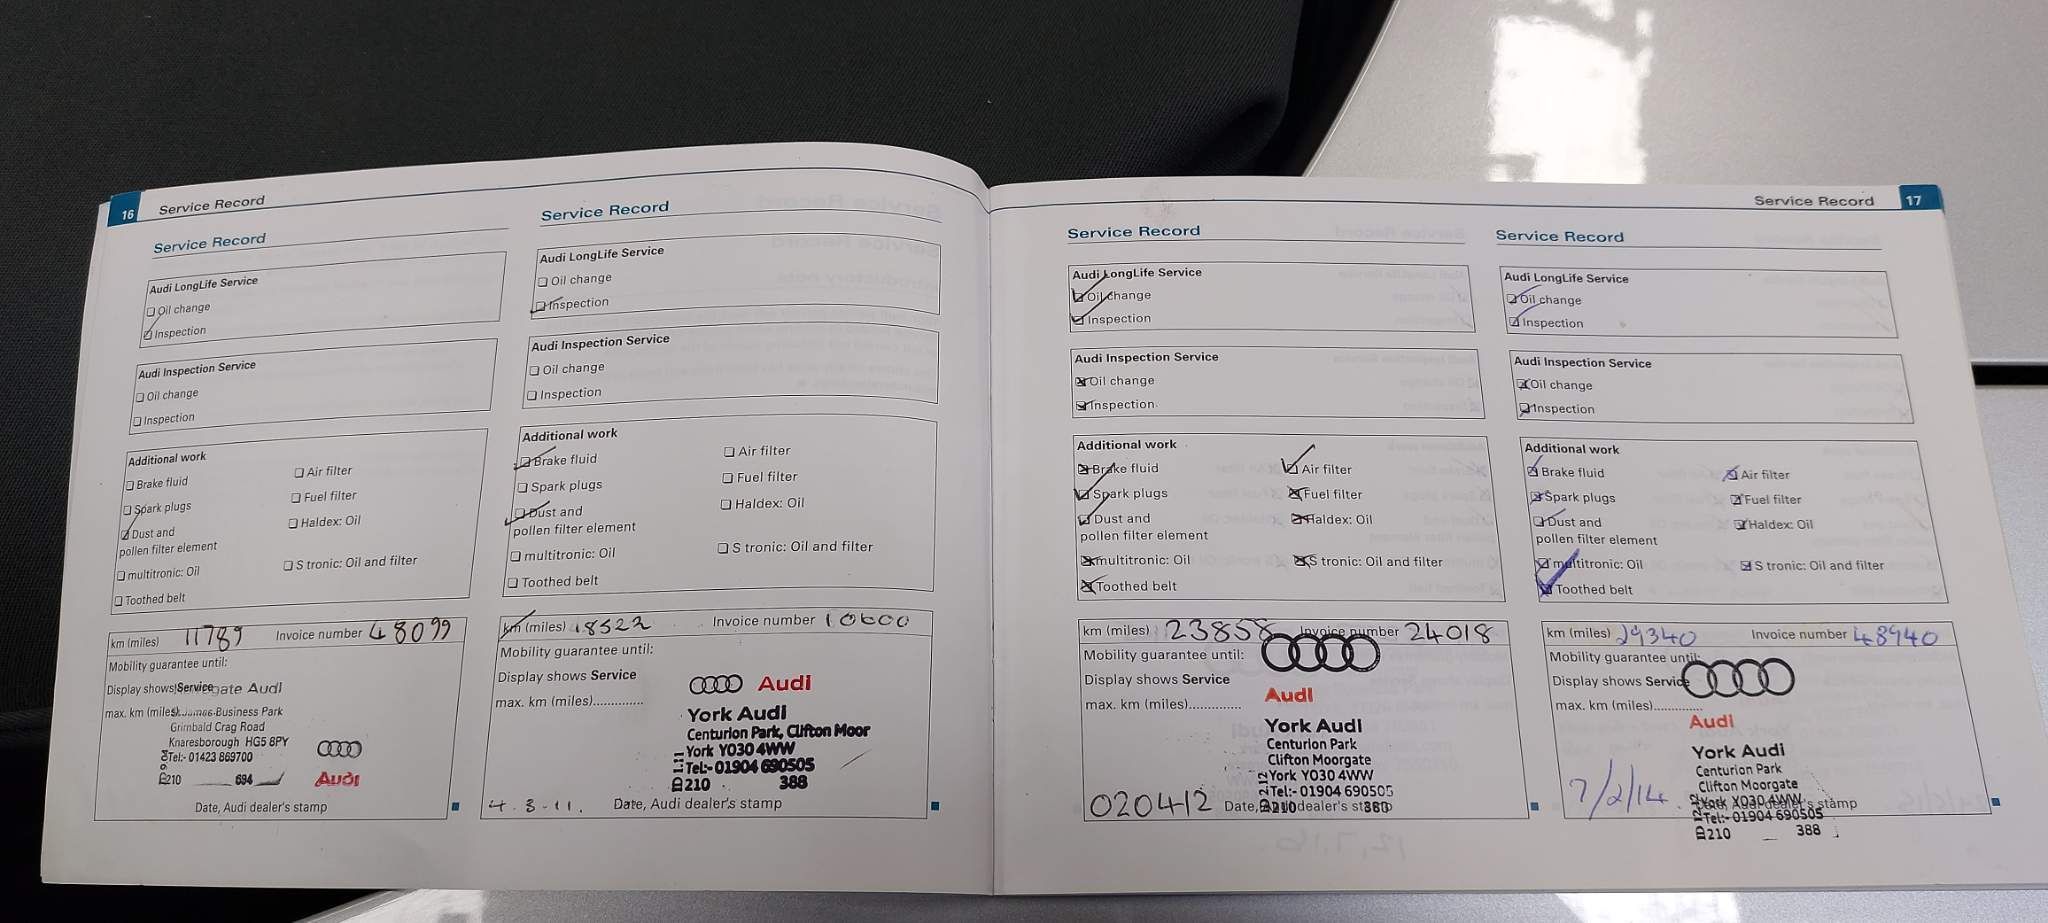 16 Service Record
Service Record
Audi LongLife Service
Oil change
Inspection
Audi Inspection Service
Oil change
Inspection
Additional work
Brake fluid
Air filter
Spark plugs
Fuel filter
Dust and
pollen filter element
Haldex: Oil
multitronic: Oil
S tronic: Oil and filter
Toothed belt
km (miles) 11789 Invoice number 48099
Mobility guarantee until:
Display shows Service gate Audi
max. km (miles) St. James Business Park
Grimbald Crag Road
Knaresborough HG5 8PY
Tel:- 01423 869700
210 694 Audi
Date, Audi dealer's stamp
Service Record
Audi LongLife Service
Oil change
Inspection
Audi Inspection Service
Oil change
Inspection
Additional work
Brake fluid
Air filter
Spark plugs
Fuel filter
Dust and
pollen filter element
Haldex: Oil
multitronic: Oil
S tronic: Oil and filter
Toothed belt
km (miles) 18522 Invoice number 10600
Mobility guarantee until:
Display shows Service
max. km (miles).............
Audi
York Audi
Centurion Park, Clifton Moor
York YO30 4WW
Tel:- 01904 690505
210 388
4.3-11. Date, Audi dealer's stamp
Service Record 17
Service Record
Audi LongLife Service
Oil change
Inspection
Audi Inspection Service
Oil change
Inspection
Additional work
Brake fluid
Air filter
Spark plugs
Fuel filter
Dust and
pollen filter element
Haldex: Oil
multitronic: Oil
S tronic: Oil and filter
Toothed belt
km (miles) 23858 Invoice number 24018
Mobility guarantee until:
Display shows Service
max. km (miles).............
Audi
York Audi
Centurion Park
Clifton Moorgate
York YO30 4WW
Tel:- 01904 690505
210 380
020412 Date, Audi dealer's stamp
Service Record
Audi LongLife Service
Oil change
Inspection
Audi Inspection Service
Oil change
Inspection
Additional work
Brake fluid
Air filter
Spark plugs
Fuel filter
Dust and
pollen filter element
Haldex: Oil
multitronic: Oil
S tronic: Oil and filter
Toothed belt
km (miles) 29340 Invoice number 48940
Mobility guarantee until:
Display shows Service
max. km (miles).............
Audi
York Audi
Centurion Park
Clifton Moorgate
York YO30 4WW
Tel:- 01904 690505
210 388
7/2/14. Date, Audi dealer's stamp